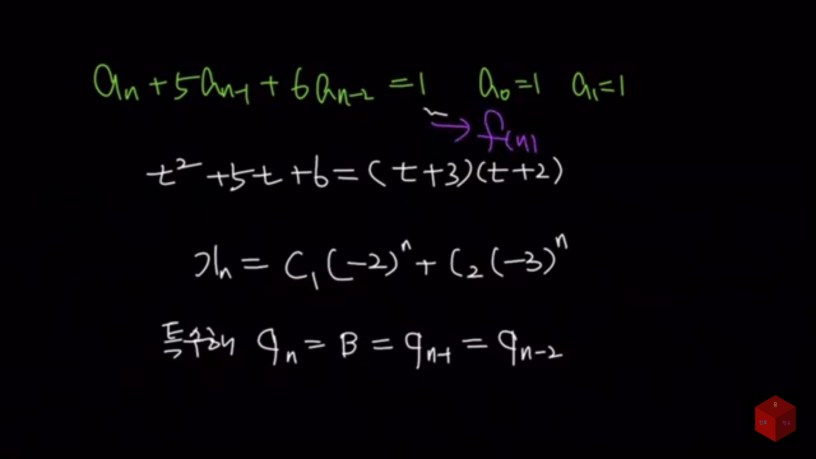 aₙ + 5aₙ₋₁ + 6aₙ₋₂ = 1   a₀ = 1   a₁ = 1
→ f(n)
t² + 5t + 6 = (t + 3)(t + 2)
xₙ = C₁(-2)ⁿ + C₂(-3)ⁿ
특수해 qₙ = B = qₙ₋₁ = qₙ₋₂